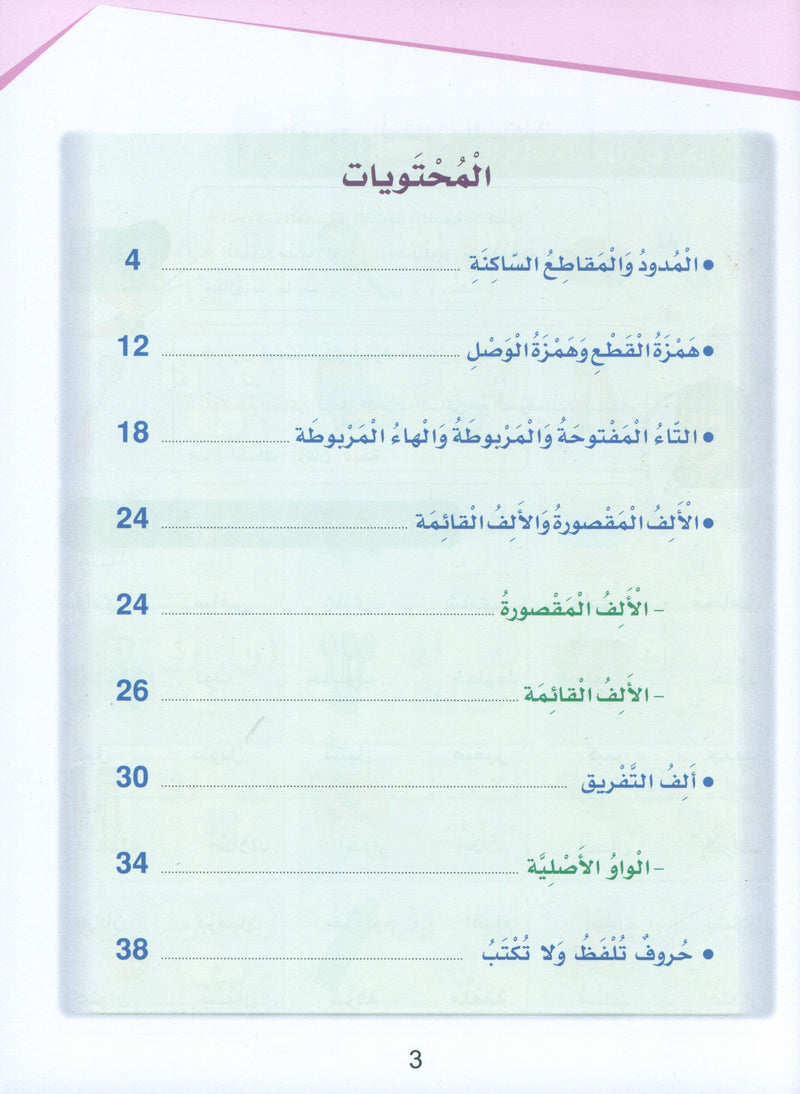 الْمُحْتَويات
• الْمُدودُ وَالْمَقاطِعُ السّاكِنَةِ ........ 4
• هَمْزَةُ الْقَطْعِ وَهَمْزَةُ الْوَصْلِ ........ 12
• التّاءُ الْمَفْتوحَةُ وَالْمَرْبوطَةُ وَالْهاءُ الْمَرْبوطَة ........ 18
• الْأَلِفُ الْمَقْصورةُ وَالأَلِفُ الْقائِمَة ........ 24
– الْأَلِفُ الْمَقْصورةُ ........ 24
– الأَلِفُ الْقائِمَة ........ 26
• أَلِفُ التَّفْريق ........ 30
– الْواوُ الأَصْلِيَّة ........ 34
• حُروفٌ تُلْفَظُ وَلا تُكْتَبُ ........ 38
3